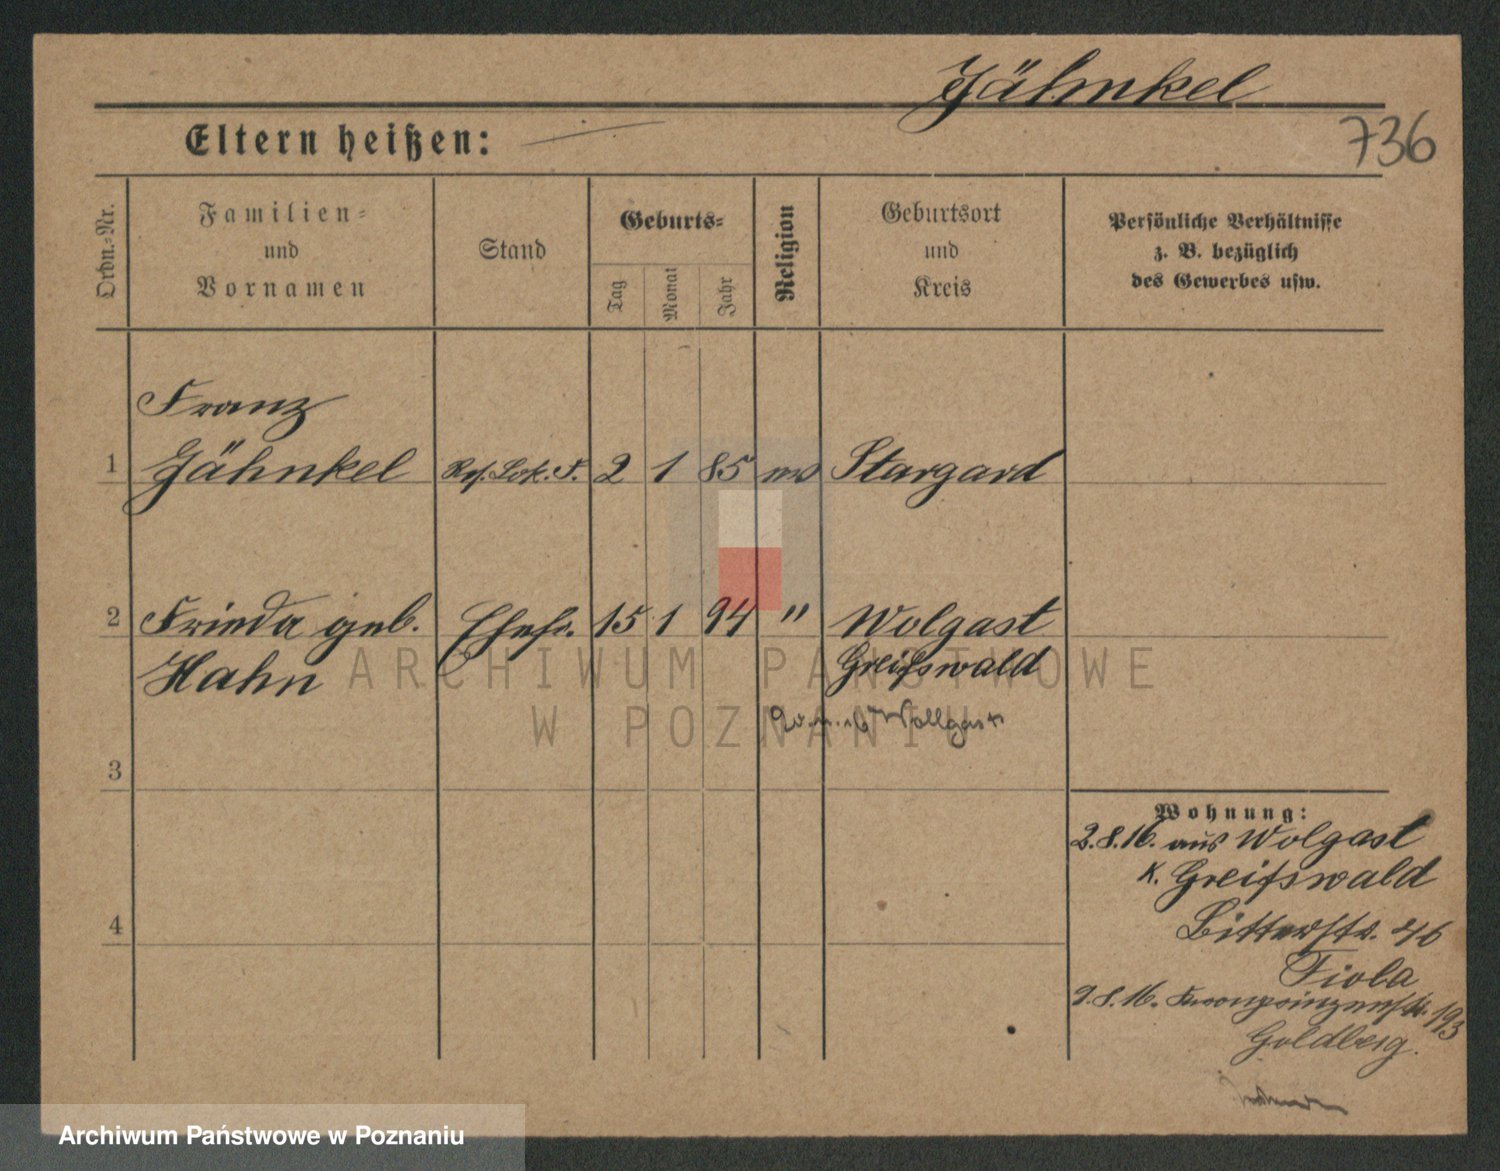 Jähnkel
736
Eltern heißen:
Ordn.-Nr.
Familien-
und
Vornamen
Stand
Geburts-
Tag
Monat
Jahr
Religion
Geburtsort
und
Kreis
Persönliche Verhältnisse
z. B. bezüglich
des Gewerbes usw.
Franz
1 Jähnkel Res. Lok. F. 2 1 85 ev Stargard
2 Frieda geb. Ehefr. 15 1 94 " Wolgast
Hahn Greifswald
Wollgast
ARCHIWUM PAŃSTWOWE
W POZNANIU
3
Wohnung:
2.8.16. aus Wolgast
K. Greifswald
Bitterstr. 46
4
Fiola
9.8.16. Kronprinzenstr. 193
Goldberg.
Archiwum Państwowe w Poznaniu